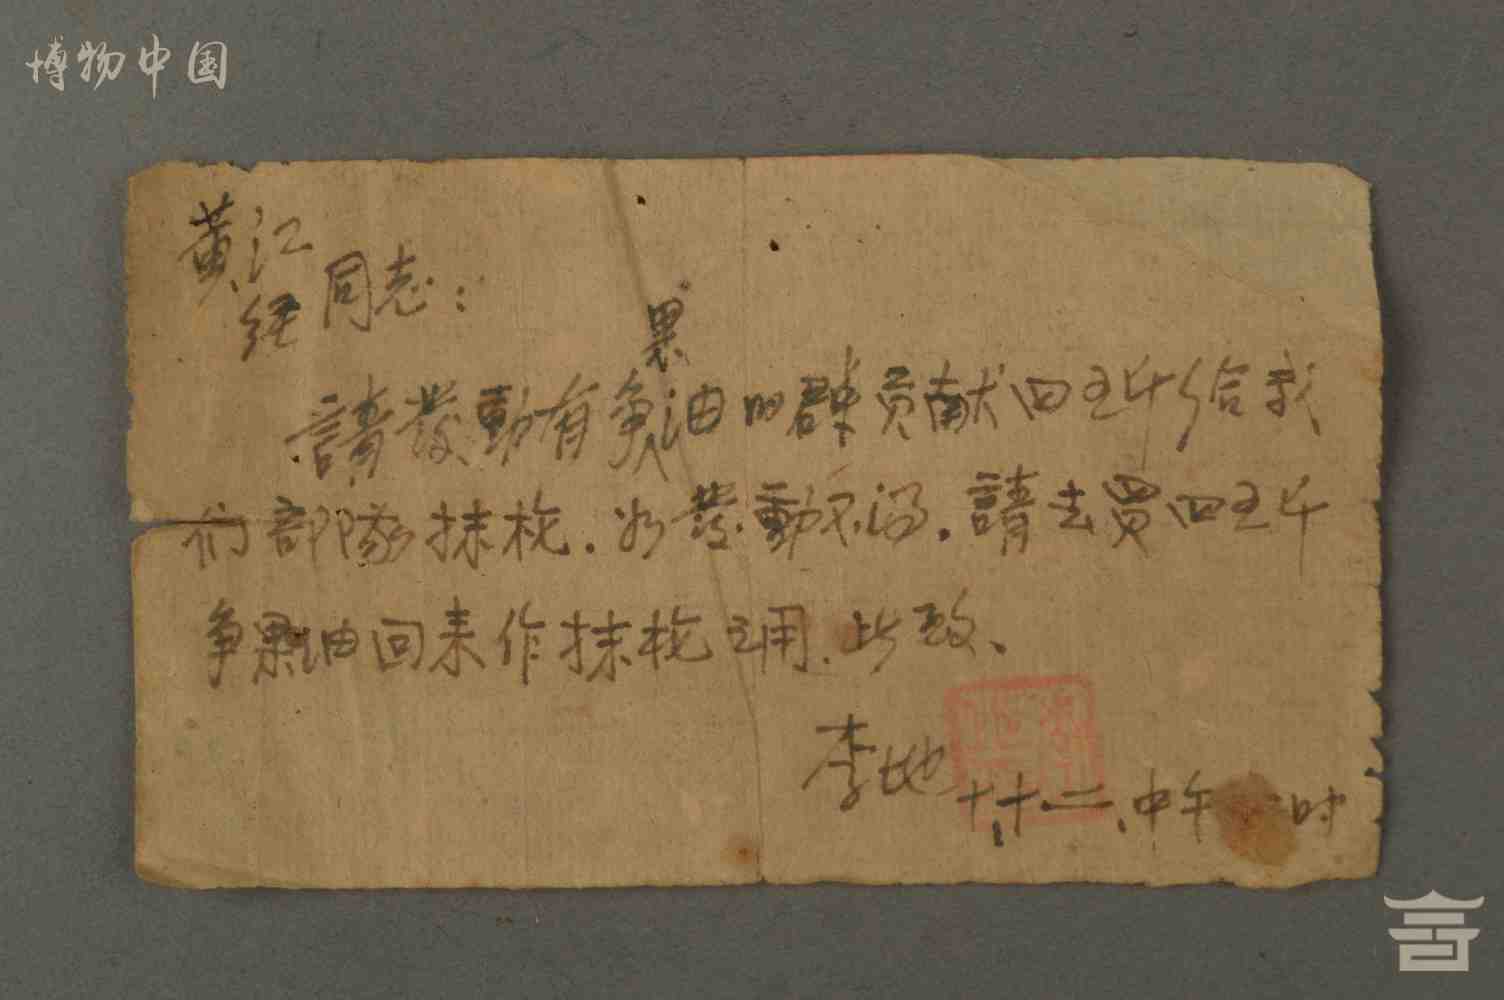 博物中国
黄江
经 同志：
果
請發動有争油的群贡献四五斤给我
们部隊抹枪．如發動不得．請去買四五斤
争果油回来作抹枪之用．此致、
李地
十、十二、中午 时